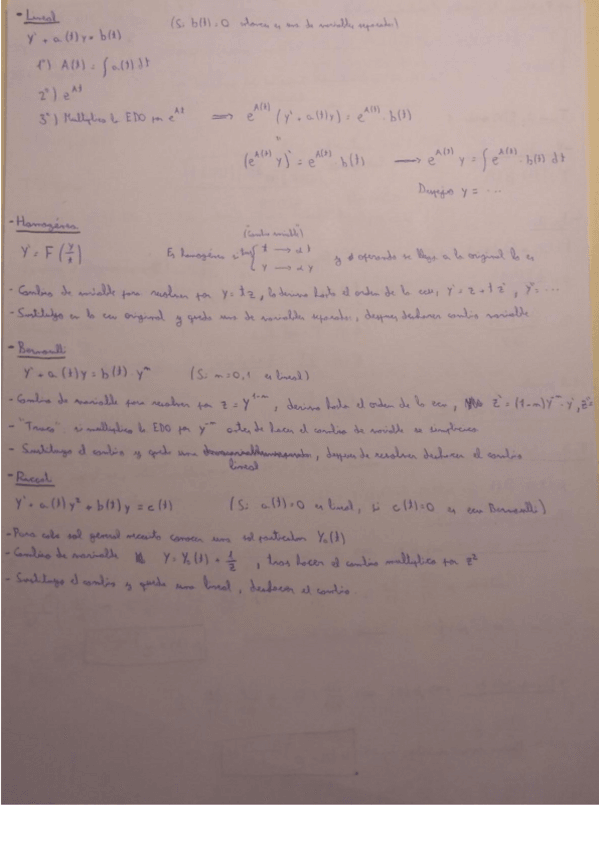 - Lineal
y' + a(t)y = b(t) (Si b(t)=0 entonces es una de variables separadas)
1º) A(t) = ∫a(t) dt
2º) e^{At}
3º) Multiplico la EDO por e^{At} ⟹ e^{A(t)} (y' + a(t)y) = e^{A(t)} · b(t)
=
(e^{A(t)} y)' = e^{A(t)} b(t) ⟶ e^{A(t)} y = ∫ e^{A(t)} · b(t) dt
Despejo y = ...
- Homogénea
(Cambio variable)
y' = F(y/t) Es homogénea si { t → αt
y → αy y operando se llega a la original lo es
- Cambio de variable para resolver por y = tz, lo derivo hasta el orden de la ecu, y' = z + tz', y'' = ...
- Sustituyo en la ecu original y queda una de variables separadas, después deshacer cambio variable
- Bernoulli
y' + a(t)y = b(t) · y^m (Si m=0,1 es lineal)
- Cambio de variable para resolver por z = y^{1-m}, derivo hasta el orden de la ecu, z' = (1-m)y^{-m} · y', z''=
- "Truco", si multiplico la EDO por y^{-m} antes de hacer el cambio de variable se simplifica
- Sustituyo el cambio y queda una lineal, después de resolver deshacer el cambio
- Riccati
y' + a(t)y² + b(t)y = c(t) (Si a(t)=0 es lineal, si c(t)=0 es ecu Bernoulli)
- Para sol general necesito conocer una sol particular y₀(t)
- Cambio de variable y = y₀(t) + 1/z, tras hacer el cambio multiplico por z²
- Sustituyo el cambio y queda una lineal, deshacer el cambio